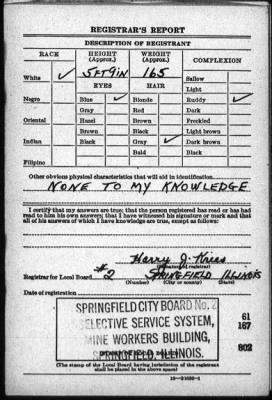 REGISTRAR'S REPORT
DESCRIPTION OF REGISTRANT
RACE HEIGHT (Approx.) WEIGHT (Approx.) COMPLEXION
White ✓ 5 FT 9 IN 165 Sallow
Light
EYES HAIR
Negro Blue ✓ Blonde Ruddy ✓
Gray Red Dark
Oriental Hazel Brown Freckled
Brown Black Light brown
Indian Black Gray ✓ Dark brown
Bald Black
Filipino
Other obvious physical characteristics that will aid in identification
NONE TO MY KNOWLEDGE
I certify that my answers are true; that the person registered has read or has had
read to him his own answers; that I have witnessed his signature or mark and that
all of his answers of which I have knowledge are true, except as follows:
Harry J.
Registrar for Local Board #2 SPRINGFIELD ILLINOIS
(Number) (City) (State)
Date of registration
SPRINGFIELD CITY BOARD No. 2
SELECTIVE SERVICE SYSTEM,
MINE WORKERS BUILDING,
SPRINGFIELD, ILLINOIS.
61
167
802
(The stamp of the Local Board having jurisdiction of the registrant
shall be placed in the above space)